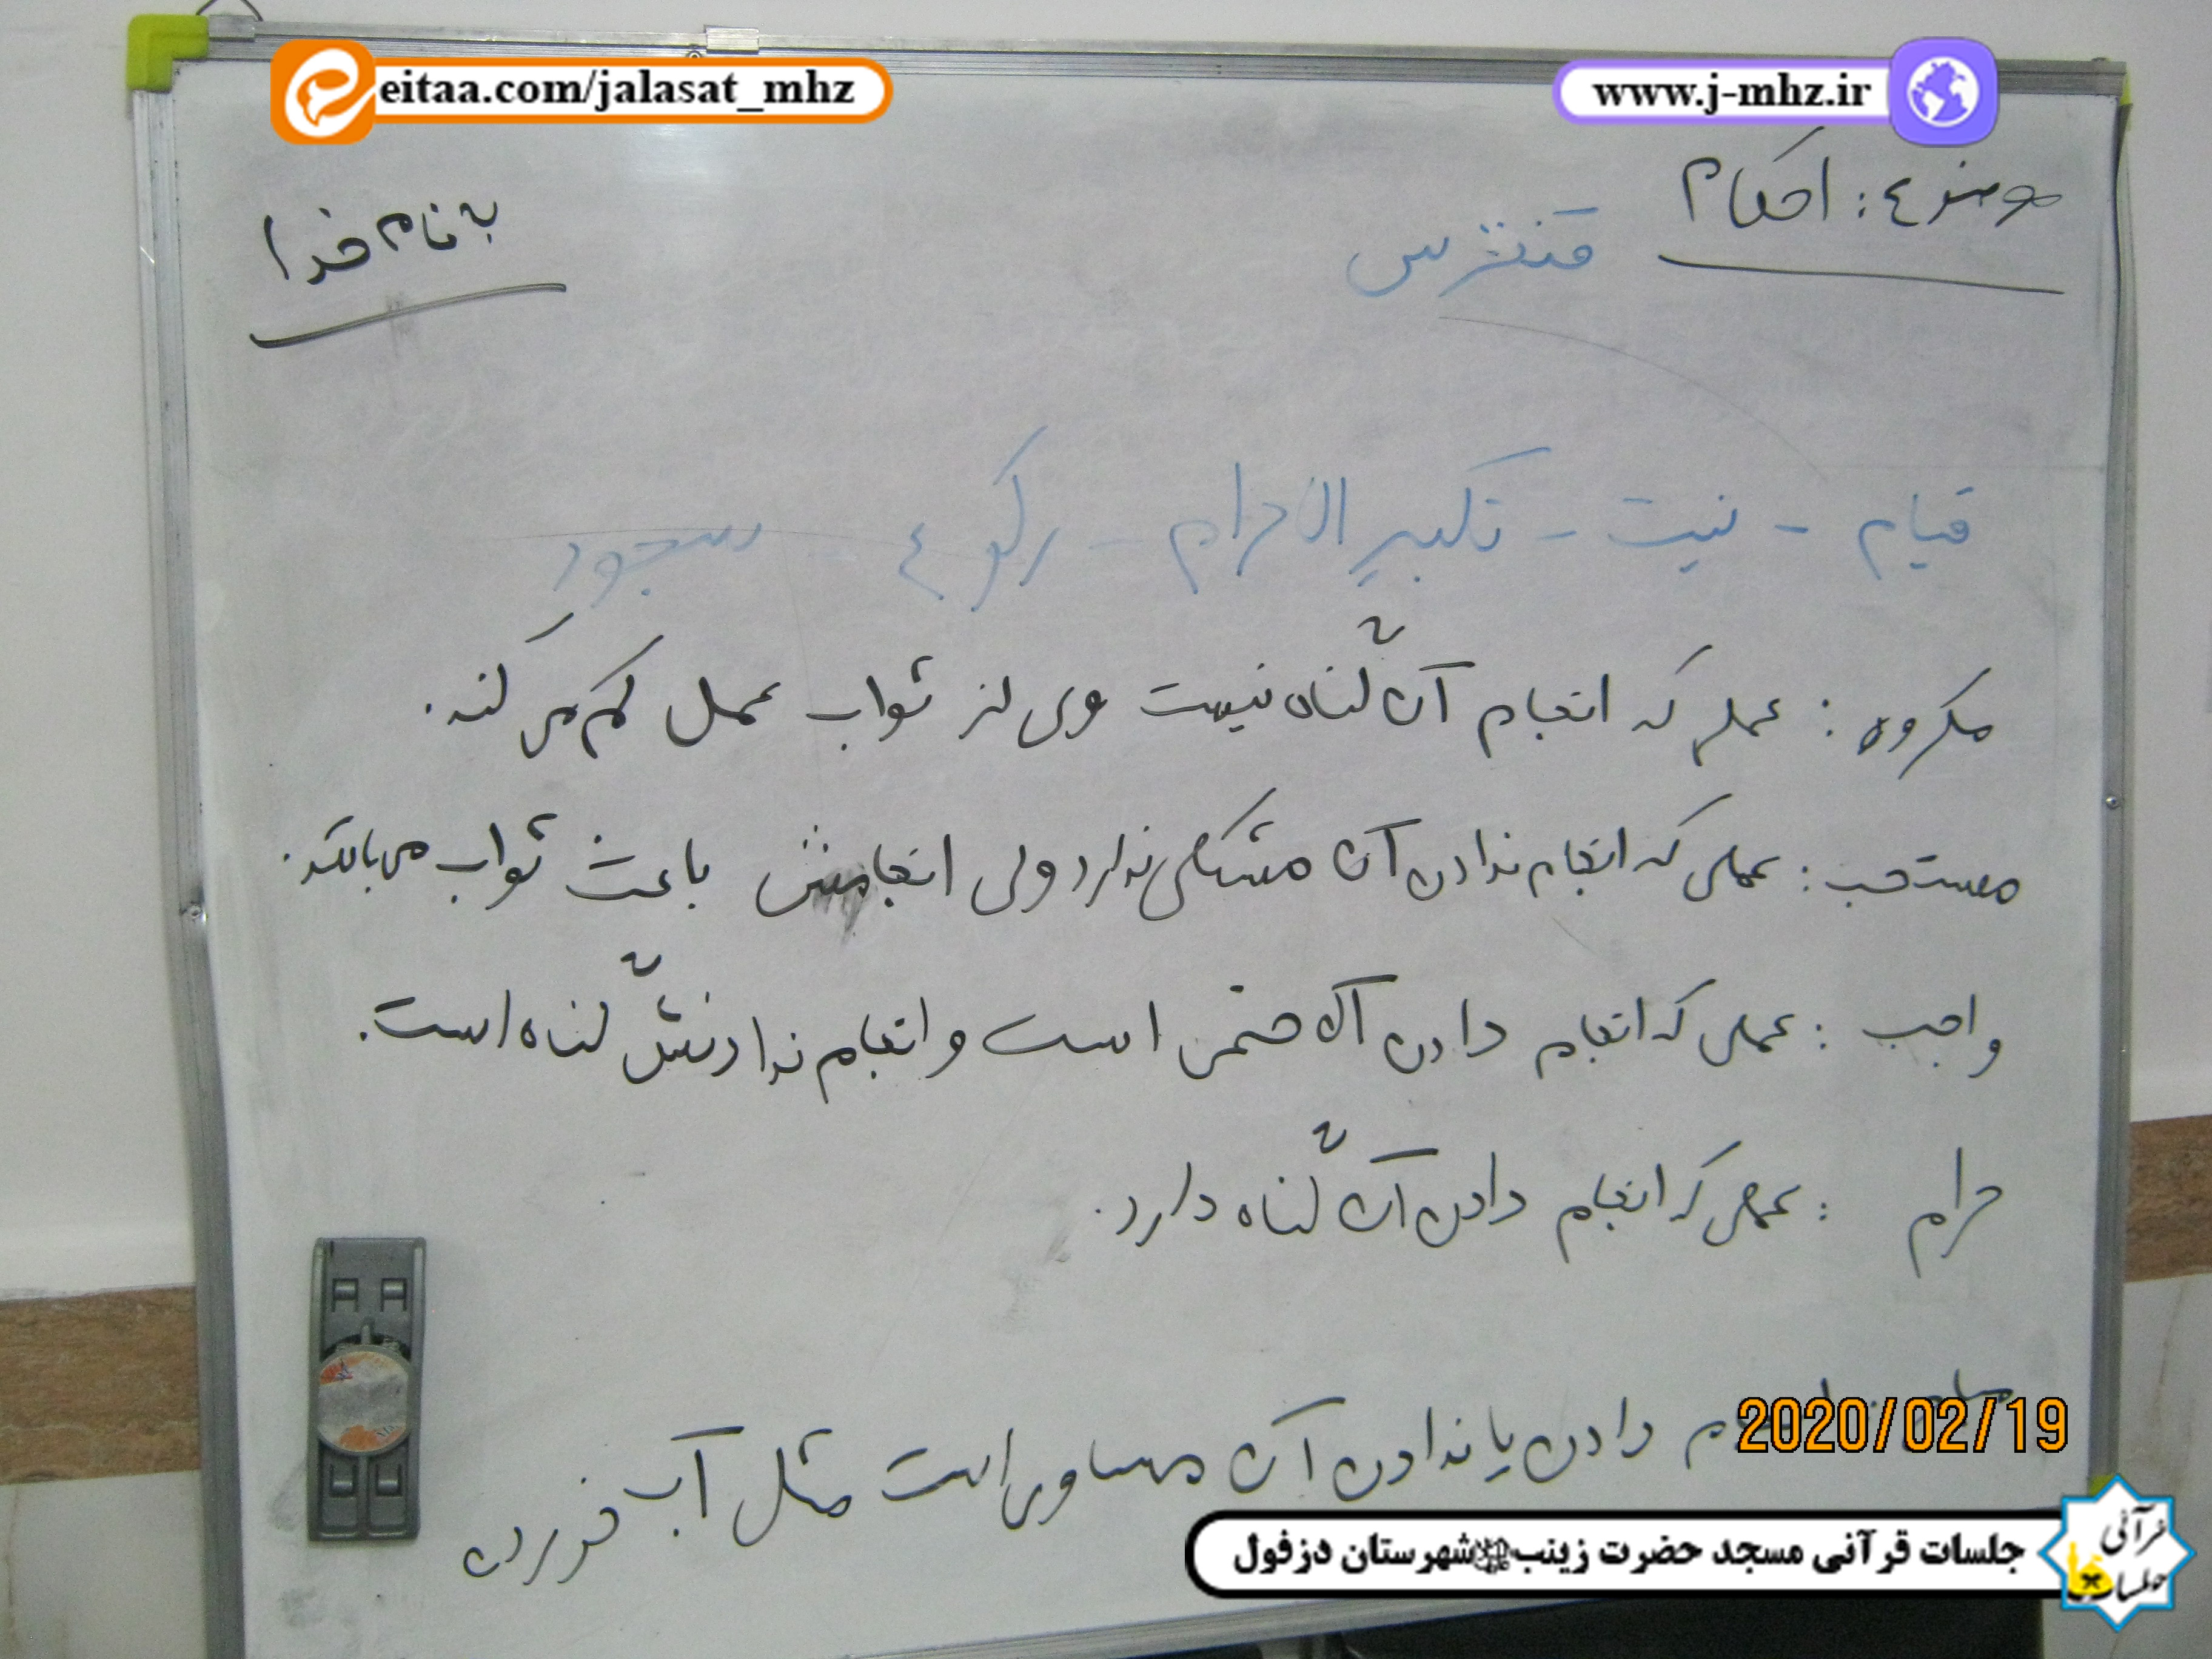 eitaa.com/jalasat_mhz
www.j-mhz.ir
موضوع: احکام
به نام خدا
قیام - نیت - تکبیر الاحرام - رکوع - سجود
مکروه: عملی که انجام آن گناه نیست ولی از ثواب عمل کم می کند.
مستحب: عملی که انجام ندادن آن مشکلی ندارد ولی انجامش باعث ثواب می باشد.
واجب: عملی که انجام دادن آن حتمی است و انجام ندادنش گناه است.
حرام: عملی که انجام دادن آن گناه دارد.
دادن یا ندادن آن مساوی است مثل آب خوردن
2020/02/19
جلسات قرآنی مسجد حضرت زینب شهرستان دزفول
قرآنی
جلسات